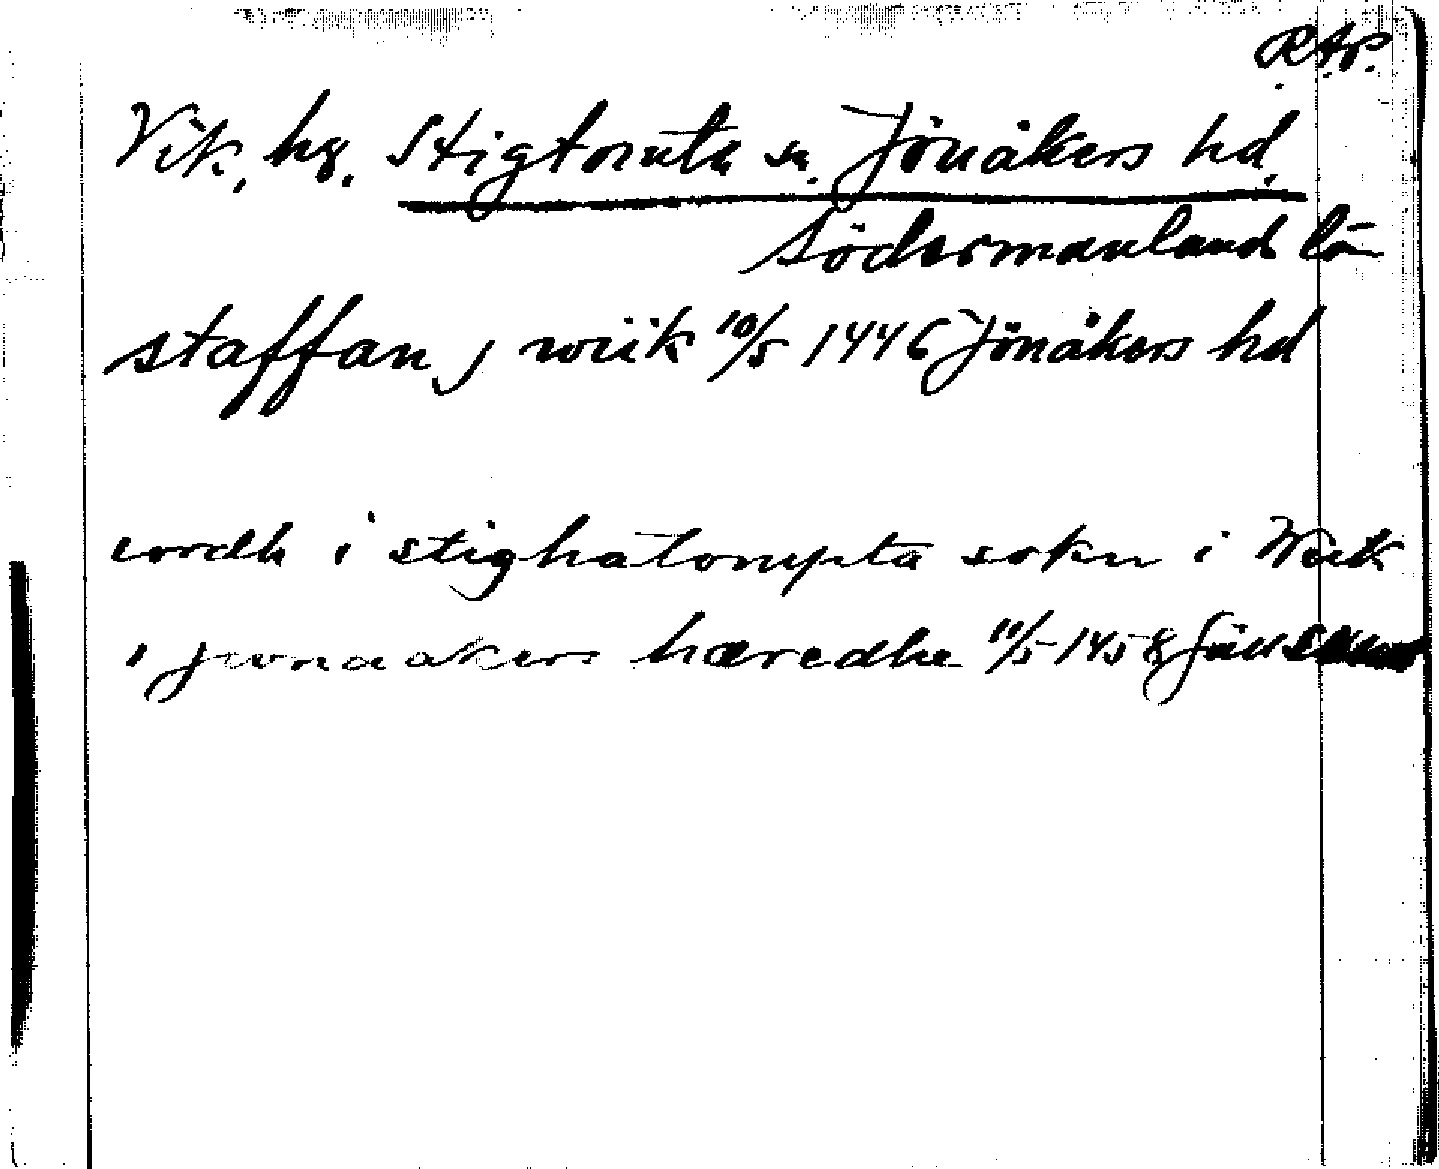 R.A.P.
Vik, hg. Stigtomta sn. Jönåkers hd.
Södermanland lä
staffan j wiik 10/5 1446 Jönåkers hd
iordh i stighatompta sokn i Wiik
i jwnaakers hæredhe 11/5 1458